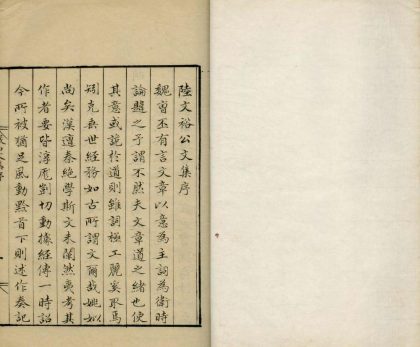 陸文裕公文集序
魏曹丕有言文章以意為主詞為衛時
論韙之予謂不然夫文章道之緒也使
其意或詭於道則雖詞極工麗奚取焉
矧克垂世經務如古所謂文爾哉姚姒
尚矣漢遵秦絕學斯文未闡然夷考其
作者要皆淳厖剴切動據經傳一時詔
令所被猶足風動黔首下則述作奏記